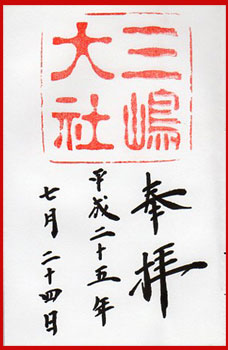 三嶋
大社
奉拝
平成二十五年
七月二十四日